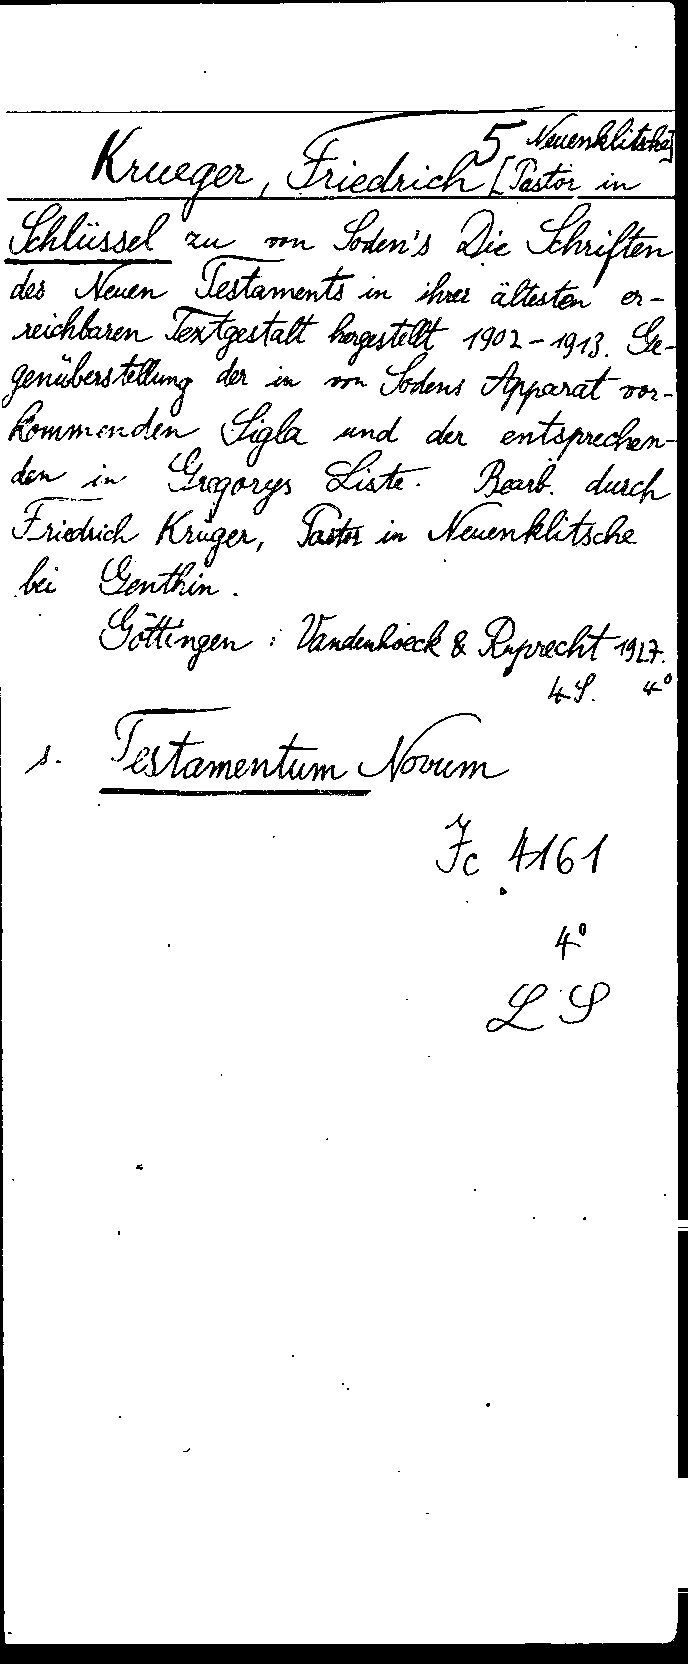 5 Neuenklitsche]
Krueger, Friedrich [Pastor in
Schlüssel zu von Soden's Die Schriften
des Neuen Testaments in ihrer ältesten er-
reichbaren Textgestalt hergestellt 1902-1913. Ge-
genüberstellung der in von Sodens Apparat vor-
kommenden Sigla und der entsprechen-
den in Gregorys Liste. Bearb. durch
Friedrich Krüger, Pastor in Neuenklitsche
bei Genthin.
Göttingen: Vandenhoeck & Ruprecht 1927.
4 S. 4°
s. Testamentum Novum
Jc 4161
4°
LS